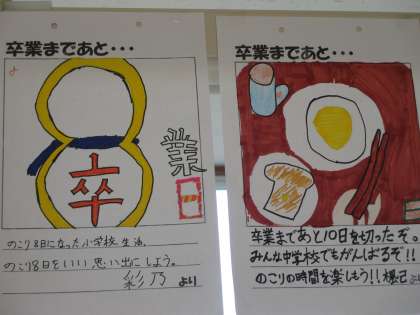 卒業まであと・・・
卒
業
のこり8日になった小学校生活。
のこり8日をいい思い出にしよう。
彩乃より
卒業まであと・・・
卒業まであと10日を切ったぞ。
みんな中学校でもがんばるぞ!!
のこりの時間を楽しもう!!
より